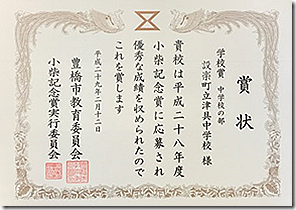 賞状
学校賞 中学校の部
設楽町立津具中学校 様
貴校は平成二十八年度
小柴記念賞に応募され
優秀な成績を収められたので
これを賞します
平成二十九年二月十二日
豊橋市教育委員会
小柴記念賞実行委員会